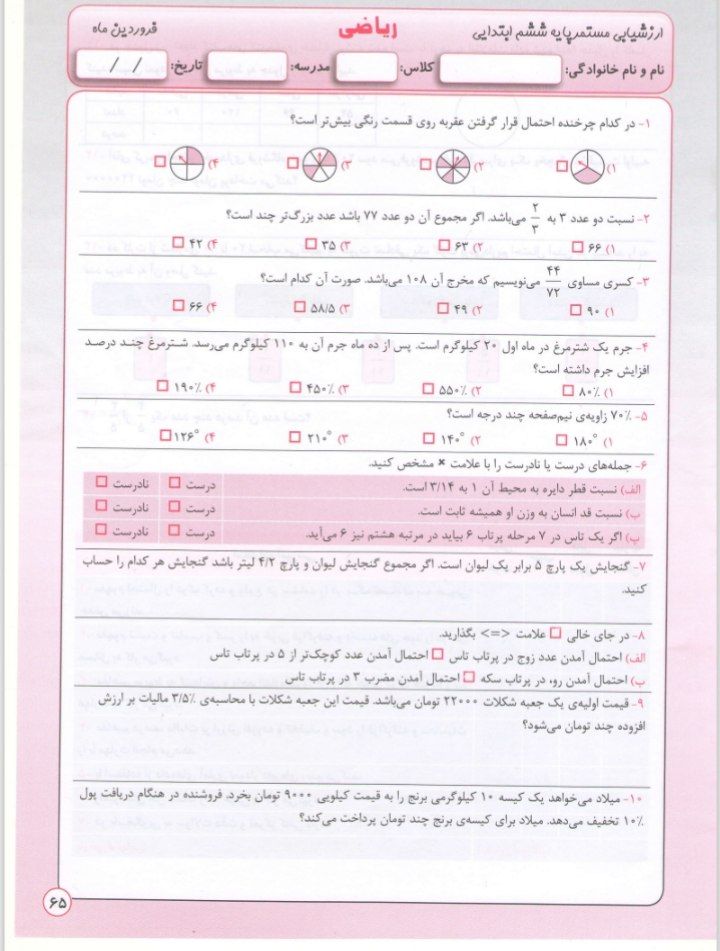 ارزشیابی مستمر پایه ششم ابتدایی ریاضی فروردین ماه
نام و نام خانوادگی: کلاس: مدرسه: تاریخ: / /
۱- در کدام چرخنده احتمال قرار گرفتن عقربه روی قسمت رنگی بیش‌تر است؟
۱) ۲) ۳) ۴)
۲- نسبت دو عدد ۳ به ۲/۳ می‌باشد. اگر مجموع آن دو عدد ۷۷ باشد عدد بزرگ‌تر چند است؟
۱) ۶۶ ۲) ۶۳ ۳) ۳۵ ۴) ۴۲
۳- کسری مساوی ۴۴/۷۲ می‌نویسیم که مخرج آن ۱۰۸ می‌باشد. صورت آن کدام است؟
۱) ۹۰ ۲) ۴۹ ۳) ۵۸/۵ ۴) ۶۶
۴- جرم یک شترمرغ در ماه اول ۲۰ کیلوگرم است. پس از ده ماه جرم آن به ۱۱۰ کیلوگرم می‌رسد. شترمرغ چند درصد
افزایش جرم داشته است؟
۱) ۸۰٪ ۲) ۵۵۰٪ ۳) ۴۵۰٪ ۴) ۱۹۰٪
۵- ۷۰٪ زاویه‌ی نیم‌صفحه چند درجه است؟
۱) ۱۸۰° ۲) ۱۴۰° ۳) ۲۱۰° ۴) ۱۲۶°
۶- جمله‌های درست یا نادرست را با علامت × مشخص کنید.
الف) نسبت قطر دایره به محیط آن ۱ به ۳/۱۴ است. درست نادرست
ب) نسبت قد انسان به وزن او همیشه ثابت است. درست نادرست
پ) اگر یک تاس در ۷ مرحله پرتاب ۶ بیاید در مرتبه هشتم نیز ۶ می‌آید. درست نادرست
۷- گنجایش یک پارچ ۵ برابر یک لیوان است. اگر مجموع گنجایش لیوان و پارچ ۴/۲ لیتر باشد گنجایش هر کدام را حساب
کنید.
۸- در جای خالی □ علامت <=> بگذارید.
الف) احتمال آمدن عدد زوج در پرتاب تاس □ احتمال آمدن عدد کوچک‌تر از ۵ در پرتاب تاس
ب) احتمال آمدن رو، در پرتاب سکه □ احتمال آمدن مضرب ۳ در پرتاب تاس
۹- قیمت اولیه‌ی یک جعبه شکلات ۲۲۰۰۰ تومان می‌باشد. قیمت این جعبه شکلات با محاسبه‌ی ۳/۵٪ مالیات بر ارزش
افزوده چند تومان می‌شود؟
۱۰- میلاد می‌خواهد یک کیسه ۱۰ کیلوگرمی برنج را به قیمت کیلویی ۹۰۰۰ تومان بخرد. فروشنده در هنگام دریافت پول
۱۰٪ تخفیف می‌دهد. میلاد برای کیسه‌ی برنج چند تومان پرداخت می‌کند؟
۶۵